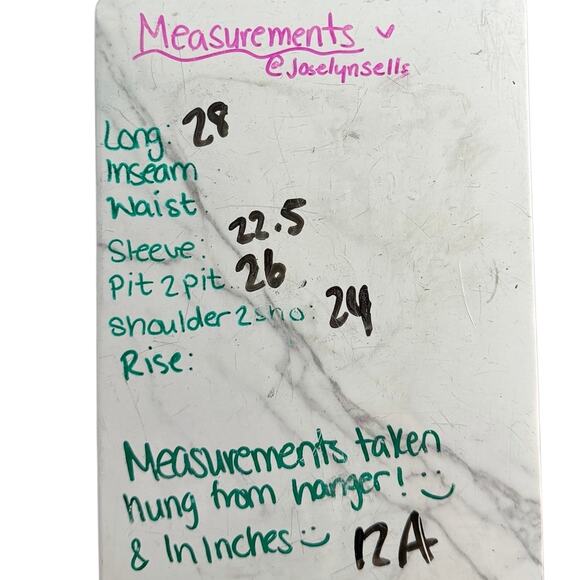 Measurements
@Joselynsells
Long: 28
Inseam
Waist
Sleeve: 22.5
Pit 2 pit: 26
Shoulder 2 sho: 24
Rise:
Measurements taken
hung from hanger!
& In Inches